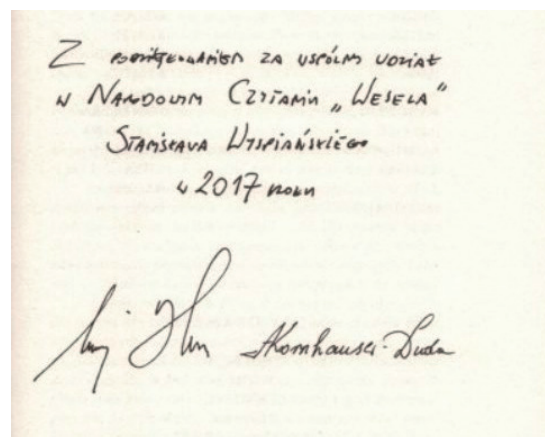 Z podziękowaniem za wspólny udział
w Narodowym Czytaniu „Wesela”
Stanisława Wyspiańskiego
w 2017 roku
AKornhauser-Duda